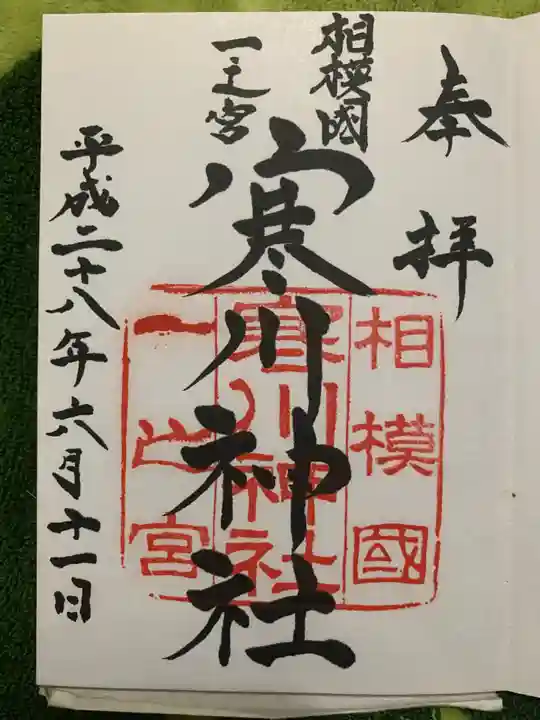 奉拝
相模國
一之宮
寒川神社
平成二十八年六月十一日
相模國
寒川神社
一之宮